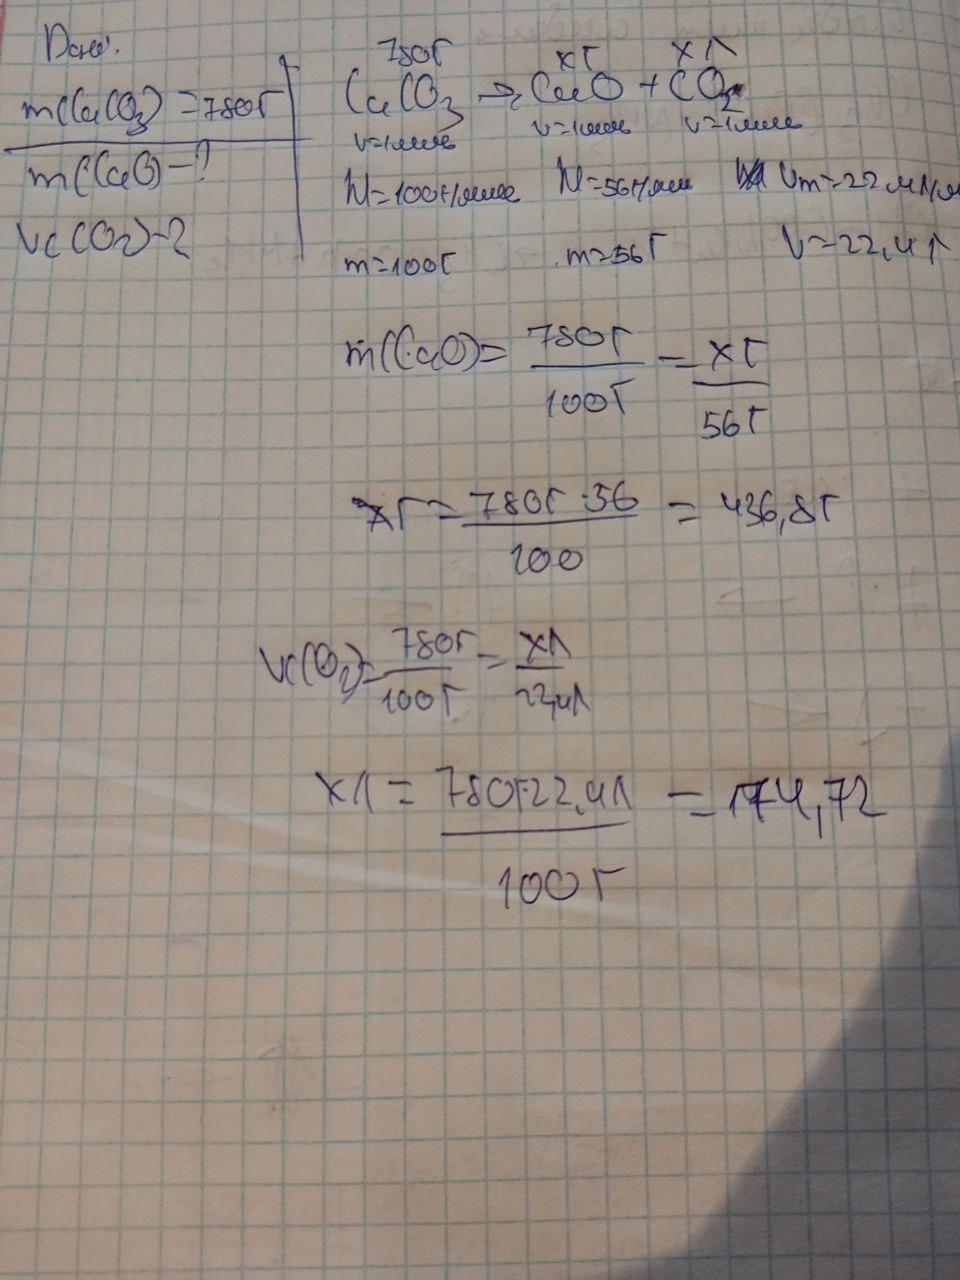 Дано.
m(CaCO3) = 780г
m(CaO) - ?
V(CO2) - ?
780г xг xл
CaCO3 → CaO + CO2
ν=1моль ν=1моль ν=1моль
M=100г/моль M=56г/моль Vm=22,4л/м
m=100г m=56г V=22,4л
m(CaO) = 780г/100г = xг/56г
xг = 780г·56/100 = 436,8г
V(CO2) = 780г/100г = xл/22,4л
xл = 780г·22,4л/100г = 174,72